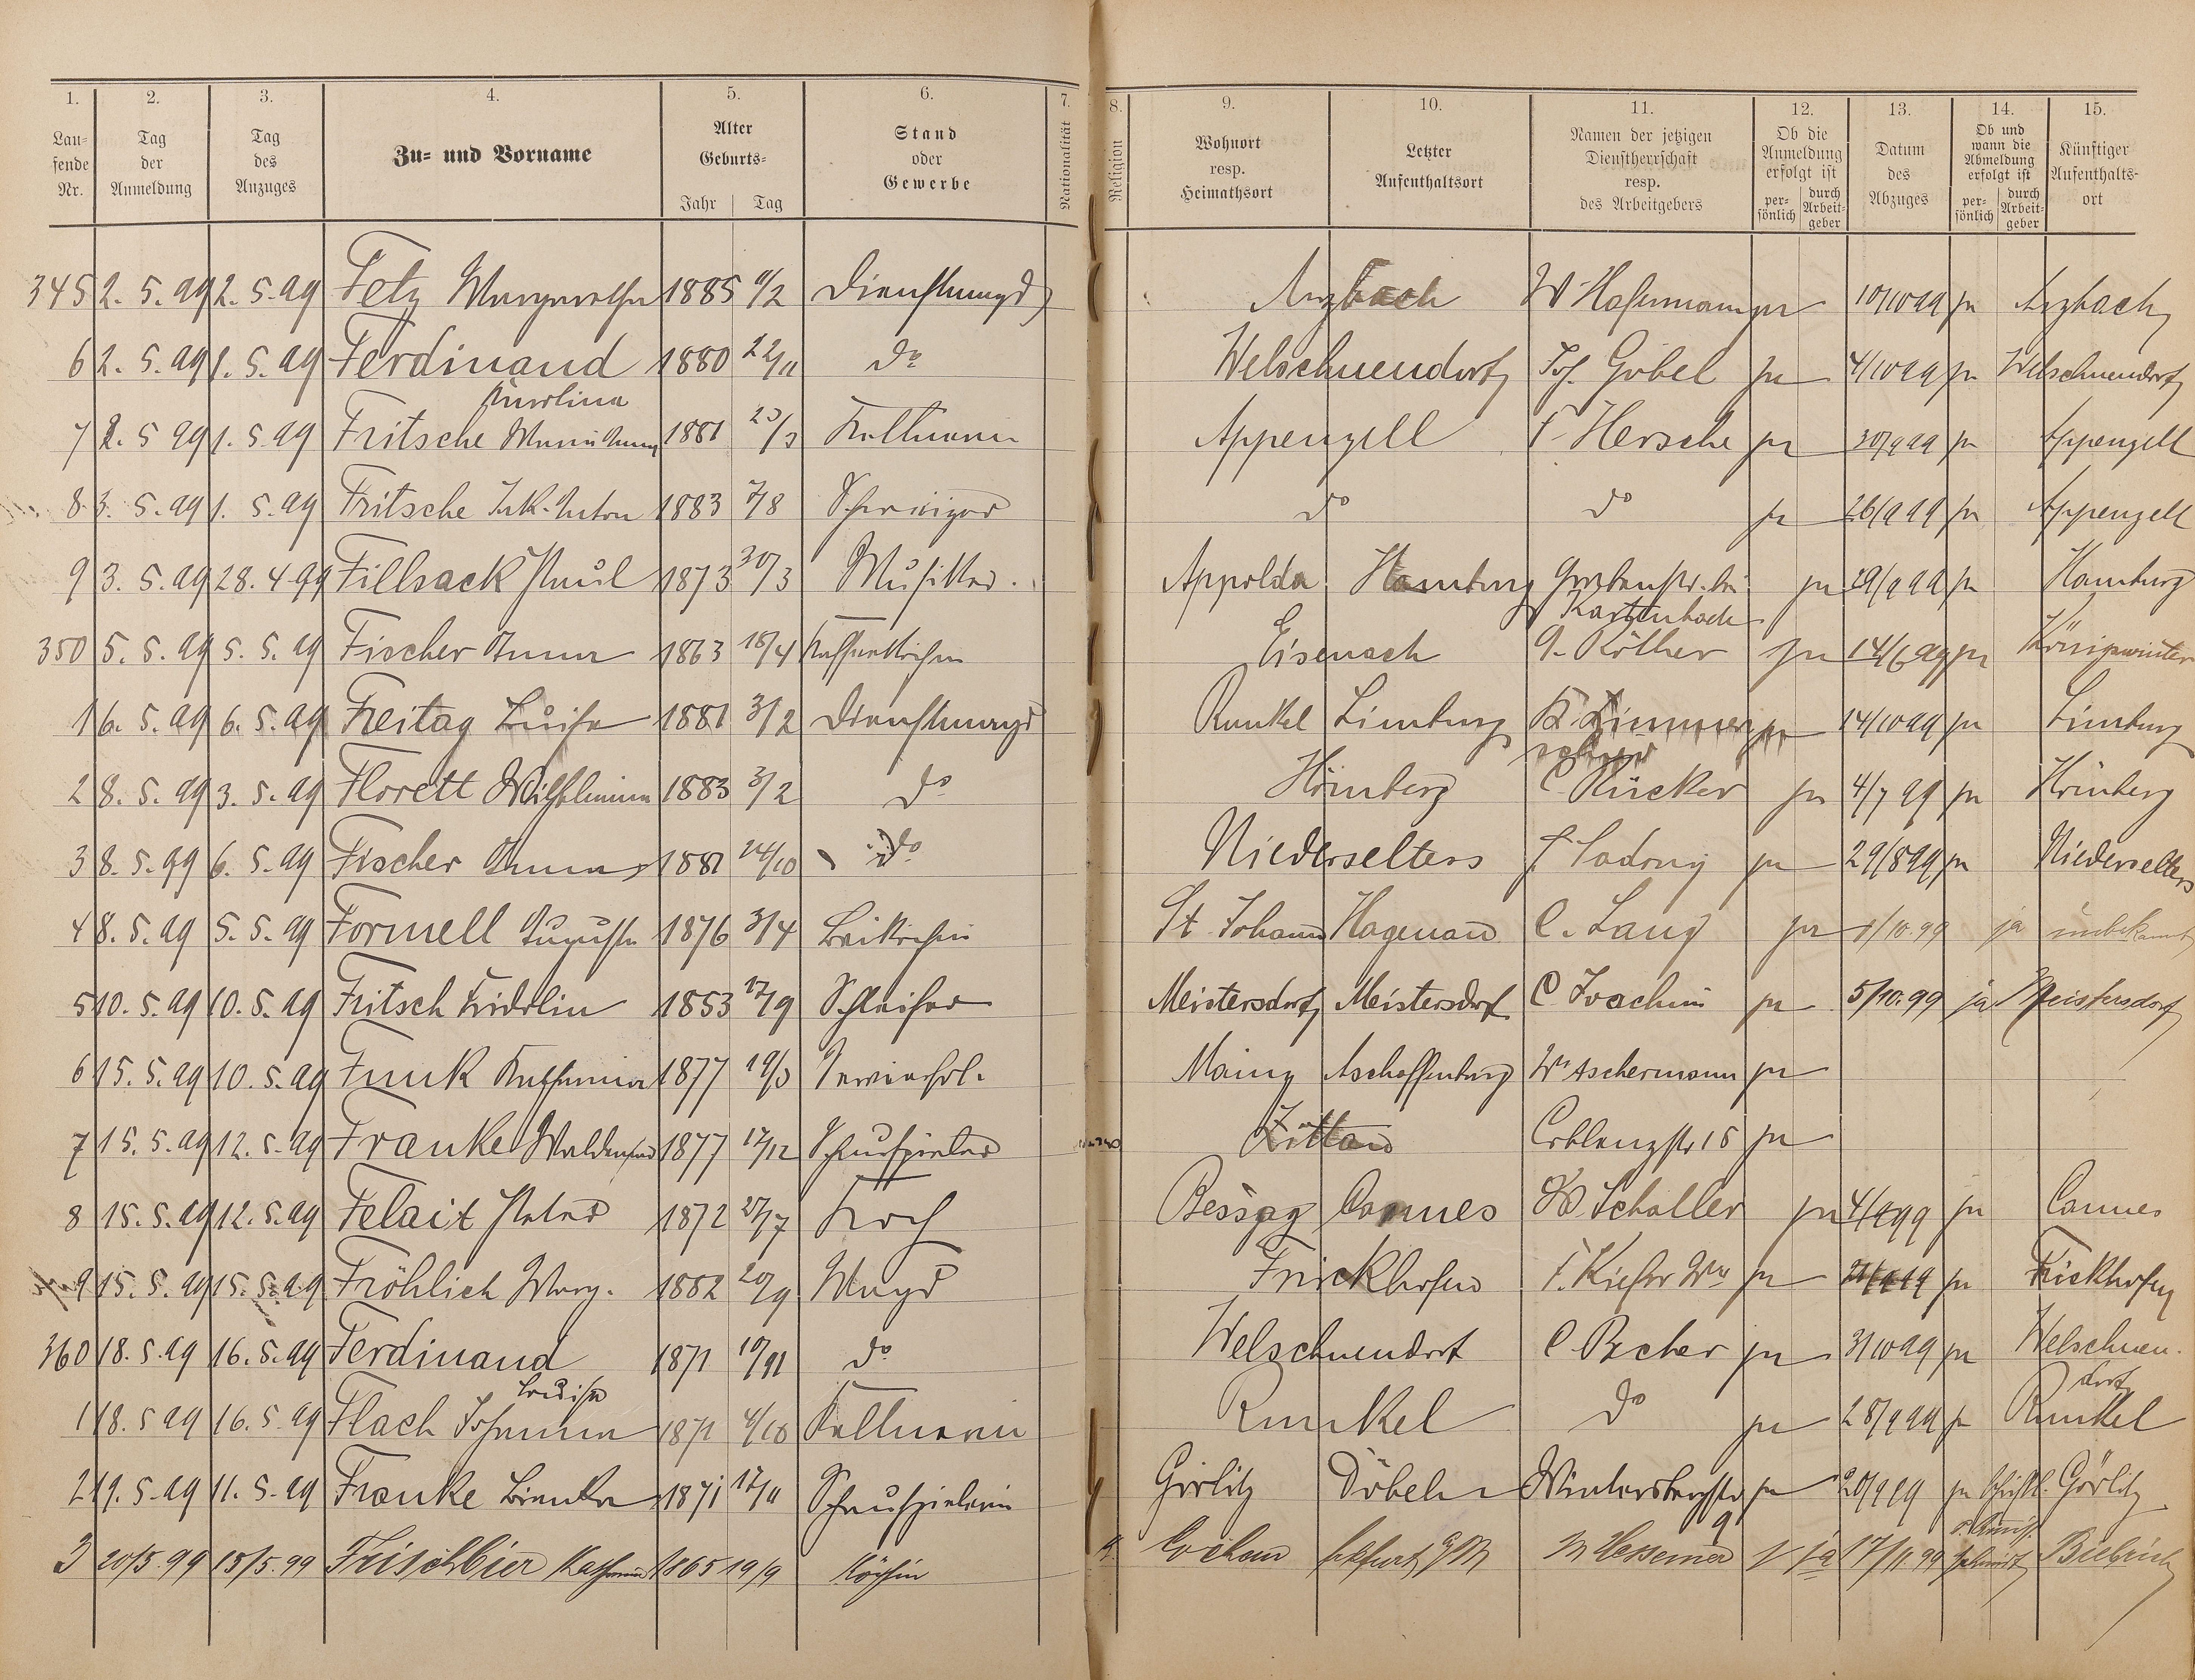 1. 2. 3. 4. 5. 6. 7. 8. 9. 10. 11. 12. 13. 14. 15.
Laufende Nr. Tag der Anmeldung Tag des Anzuges Zu- und Vorname Alter Geburts- Jahr Tag Stand oder Gewerbe Nationalität Religion Wohnort resp. Heimathsort Letzter Aufenthaltsort Namen der jetzigen Dienstherrschaft resp. des Arbeitgebers Ob die Anmeldung erfolgt ist persönlich durch Arbeitgeber Datum des Abzuges Ob und wann die Abmeldung erfolgt ist persönlich durch Arbeitgeber Künftiger Aufenthaltsort
345 2. 5. 99 2. 5. 99 Fetz Margarethe 1885 Dienstmagd Arzbach W Hofmann ja 10/10 99 ja Arzbach
6 2. 5. 99 1. 5. 99 Ferdinand Karolina 1880 22/11 do Welschneudorf Jos. Göbel ja 4/10 99 ja Welschneudorf
7 2. 5 99 1. 5. 99 Fritsche Maria Anna 1881 Kellnerin Appenzell F Hersche ja 30/9 99 ja Appenzell
8 3. 5. 99 1. 5. 99 Fritsche Jak. Anton 1883 7/8 Schweizer do do ja 26/9 99 ja Appenzell
9 3. 5. 99 28. 4 99 Fillsack Paul 1873 30/3 Musiker. Appolda Hamburg Grabenstr. bei Kastenbach ja 29/9 99 ja Hamburg
350 5. 5. 99 5. 5. 99 Fischer Anna 1863 18/4 Kaffeeköchin Eisenach G. Röther ja 14/6 99 ja Königswinter
1 6. 5. 99 6. 5. 99 Freitag Luise 1881 3/2 Dienstmagd Runkel Limburg K. Zimmer ja 14/10 99 ja Limburg
2 8. 5. 99 3. 5. 99 Florett Wilhelmina 1883 3/2 do C. Rücker ja 4/7 99 ja
3 8. 5. 99 6. 5. 99 Fischer Anna 1881 24/10 do Niederselters ja 29/8 99 ja Niederselters
4 8. 5. 99 5. 5. 99 Formell Auguste 1876 3/4 Beiköchin St. Johann Hagenau C. Lang ja 1/10. 99 ja unbekannt
5 10. 5. 99 10. 5. 99 Fritsch Fridolin 1853 17/9 Schleifer Meistersdorf Meistersdorf C Joachim ja 5/10. 99 ja Meistersdorf
6 15. 5. 99 10. 5. 99 Funk Katharina 1877 19/3 Mainz Aschaffenburg Wr Aschermann ja
7 15. 5. 99 12. 5. 99 Franke Waldemar 1877 17/12 Schauspieler Zittau Coblenzstr 15 ja
8 15. 5. 99 12. 5. 99 Felait Peter 1872 27/7 Koch Cannes W. Schaller ja 4/9 99 ja Cannes
9 15. 5. 99 15. 5. 99 Fröhlich Marg. 1882 20/9 Magd Frickhofen F. Kiefer Wwe ja ja Frickhofen
360 18. 5. 99 16. 5. 99 Ferdinand Louise 1871 19/11 do Welschneudorf C Becher ja 3/10 99 ja Welschneudorf
1 18. 5 99 16. 5. 99 Flach Johanna 1871 4/10 Kellnerin Runkel do ja 28/9 99 ja Runkel
2 19. 5. 99 11. 5. 99 Franke Bianka 1871 17/11 Schauspielerin Görlitz Döbeln Wintersbergstr 9 ja 20/9 99 ja Görlitz
3 20/5. 99 15/5. 99 Frischbier Katharina 1865 19/9 Köchin Cochem M Hessemer ja 17/11. 99 Biebrich